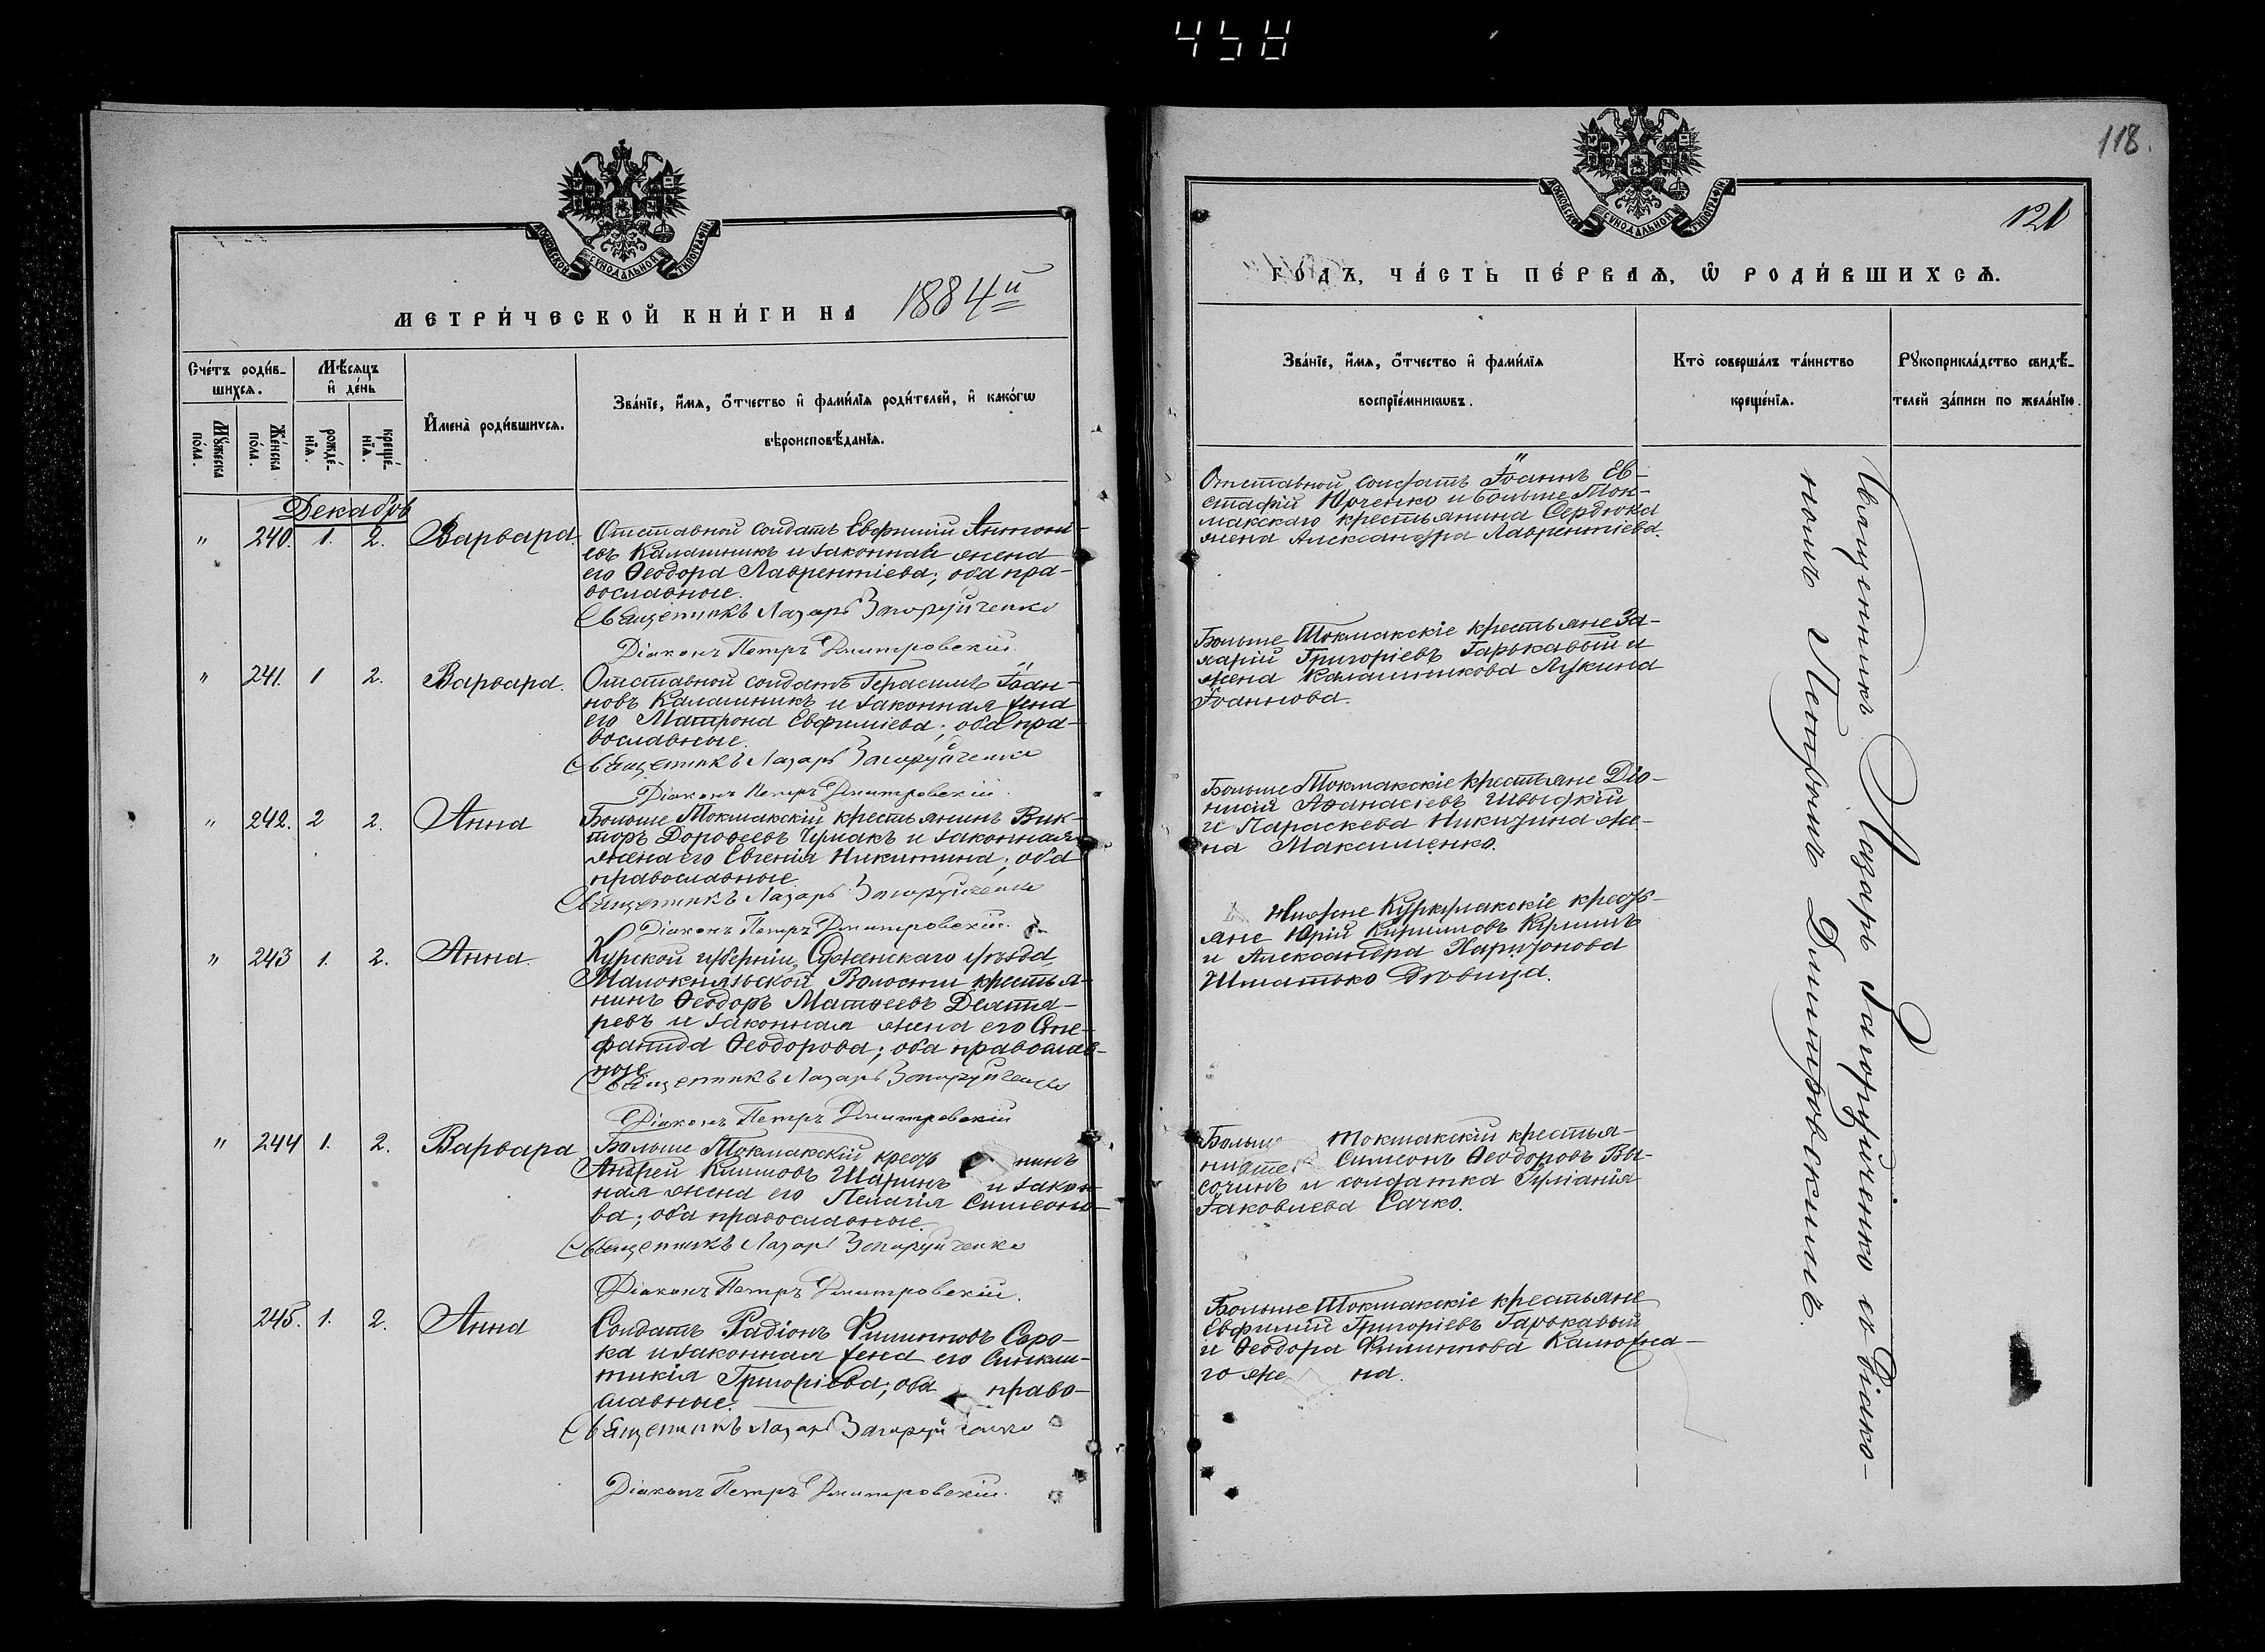 458
118.
МОСКОВСКОЙ СѴНОДАЛЬНОЙ ТИПОГРАФІИ
МЕТРИ́ЧЕСКОЙ КНИ́ГИ НА 1884й
Сче́тъ роди́в-
шихсѧ.
Мѣ́сѧцъ
и҆ де́нь
Мꙋ́жеска
по́ла.
Же́нска
по́ла.
рожде́-
нїѧ.
креще́-
нїѧ.
И҆мена̀ роди́вшихсѧ.
Зва́нїе, и҆́мѧ, ѻ҆́тчество и҆ фами́лїѧ роди́телей, и҆ како́гѡ
вѣроисповѣ́данїѧ.
Декабрь
" 240. 1. 2. Варвара.
Отставной солдатъ Евфимій Антоні-
евъ Калашникъ и законная жена
его Ѳеодора Лаврентіева; оба пра-
вославные.
Священникъ Лазарь Загоруйченко
Діаконъ Петръ Дмитровскій.
" 241. 1 2. Варвара.
Отставной солдатъ Герасимъ Іоан-
новъ Калашникъ и законная жена
его Матрона Евфиміева; оба пра-
вославные.
Священникъ Лазарь Загоруйченко
Діаконъ Петръ Дмитровскій.
" 242. 2 2. Анна
Больше Токмакскій крестьянинъ Вик-
торъ Дороѳеевъ Чумакъ и законная
жена его Евгенія Никитина; оба
православные.
Священникъ Лазарь Загоруйченко
Діаконъ Петръ Дмитровскій.
" 243 1. 2. Анна.
Курской губерніи, Суженскаго уѣзда,
Волости крестья-
нинъ Ѳеодоръ Матѳеевъ Дехтя-
ревъ и законная жена его Сте-
фанида Ѳеодорова; оба православ-
ные.
Священникъ Лазарь Загоруйченко
Діаконъ Петръ Дмитровскій
" 244 1. 2. Варвара
Больше Токмакскій крестья нинъ
Андрей Климовъ и закон-
ная жена его Пелагія Симеоно-
ва; оба православные.
Священникъ Лазарь Загоруйченко
Діаконъ Петръ Дмитровскій.
245. 1. 2. Анна
Солдатъ Радіонъ Филипповъ Соро-
ка и законная жена его Синкли-
тикія Григоріева; оба право-
славные.
Священникъ Лазарь Загоруйченко
Діаконъ Петръ Дмитровскій.
МОСКОВСКОЙ СѴНОДАЛЬНОЙ ТИПОГРАФІИ
121
ГО́ДЪ, ЧА́СТЬ ПЕ́РВАѦ, Ѽ РОДИ́ВШИХСѦ.
Зва́нїе, и҆́мѧ, ѻ҆́тчество и҆ фами́лїѧ
воспрїе́мникѡвъ.
Кто̀ соверша́лъ та́инство
креще́нїѧ.
Рꙋкоприкла́дство свидѣ́-
телей за́писи по жела́нїю.
Отставной солдатъ Іоаннъ Ев-
стафій Юрченко и Больше Ток-
макскаго крестьянина Сердюка
жена Александра Лаврентіева.
Больше Токмакскіе крестьяне За-
харій Григоріевъ Гаркавый и
жена Калашникова Лукина
Іоаннова.
Больше Токмакскіе крестьяне Діо-
нисій Аѳанасіевъ Швыдкій
и Параскева Никитина же-
на Максименко.
Нижне Куркулакскіе кресть-
яне Юрій Кирилловъ
и Александра Харитонова
Шматько дѣвица.
Больше Токмакскій крестья-
нинъ Симеонъ Ѳеодоровъ Вы-
сочинъ и солдатка Іуліанія
Іаковлева Сачко.
Больше Токмакскіе крестьяне
Евфимій Григоріевъ Гаркавый
и Ѳеодора Филиппова Калюжна-
го же на.
Священникъ Лазарь Загоруйченко съ діако-
номъ Петромъ Димитровскимъ.